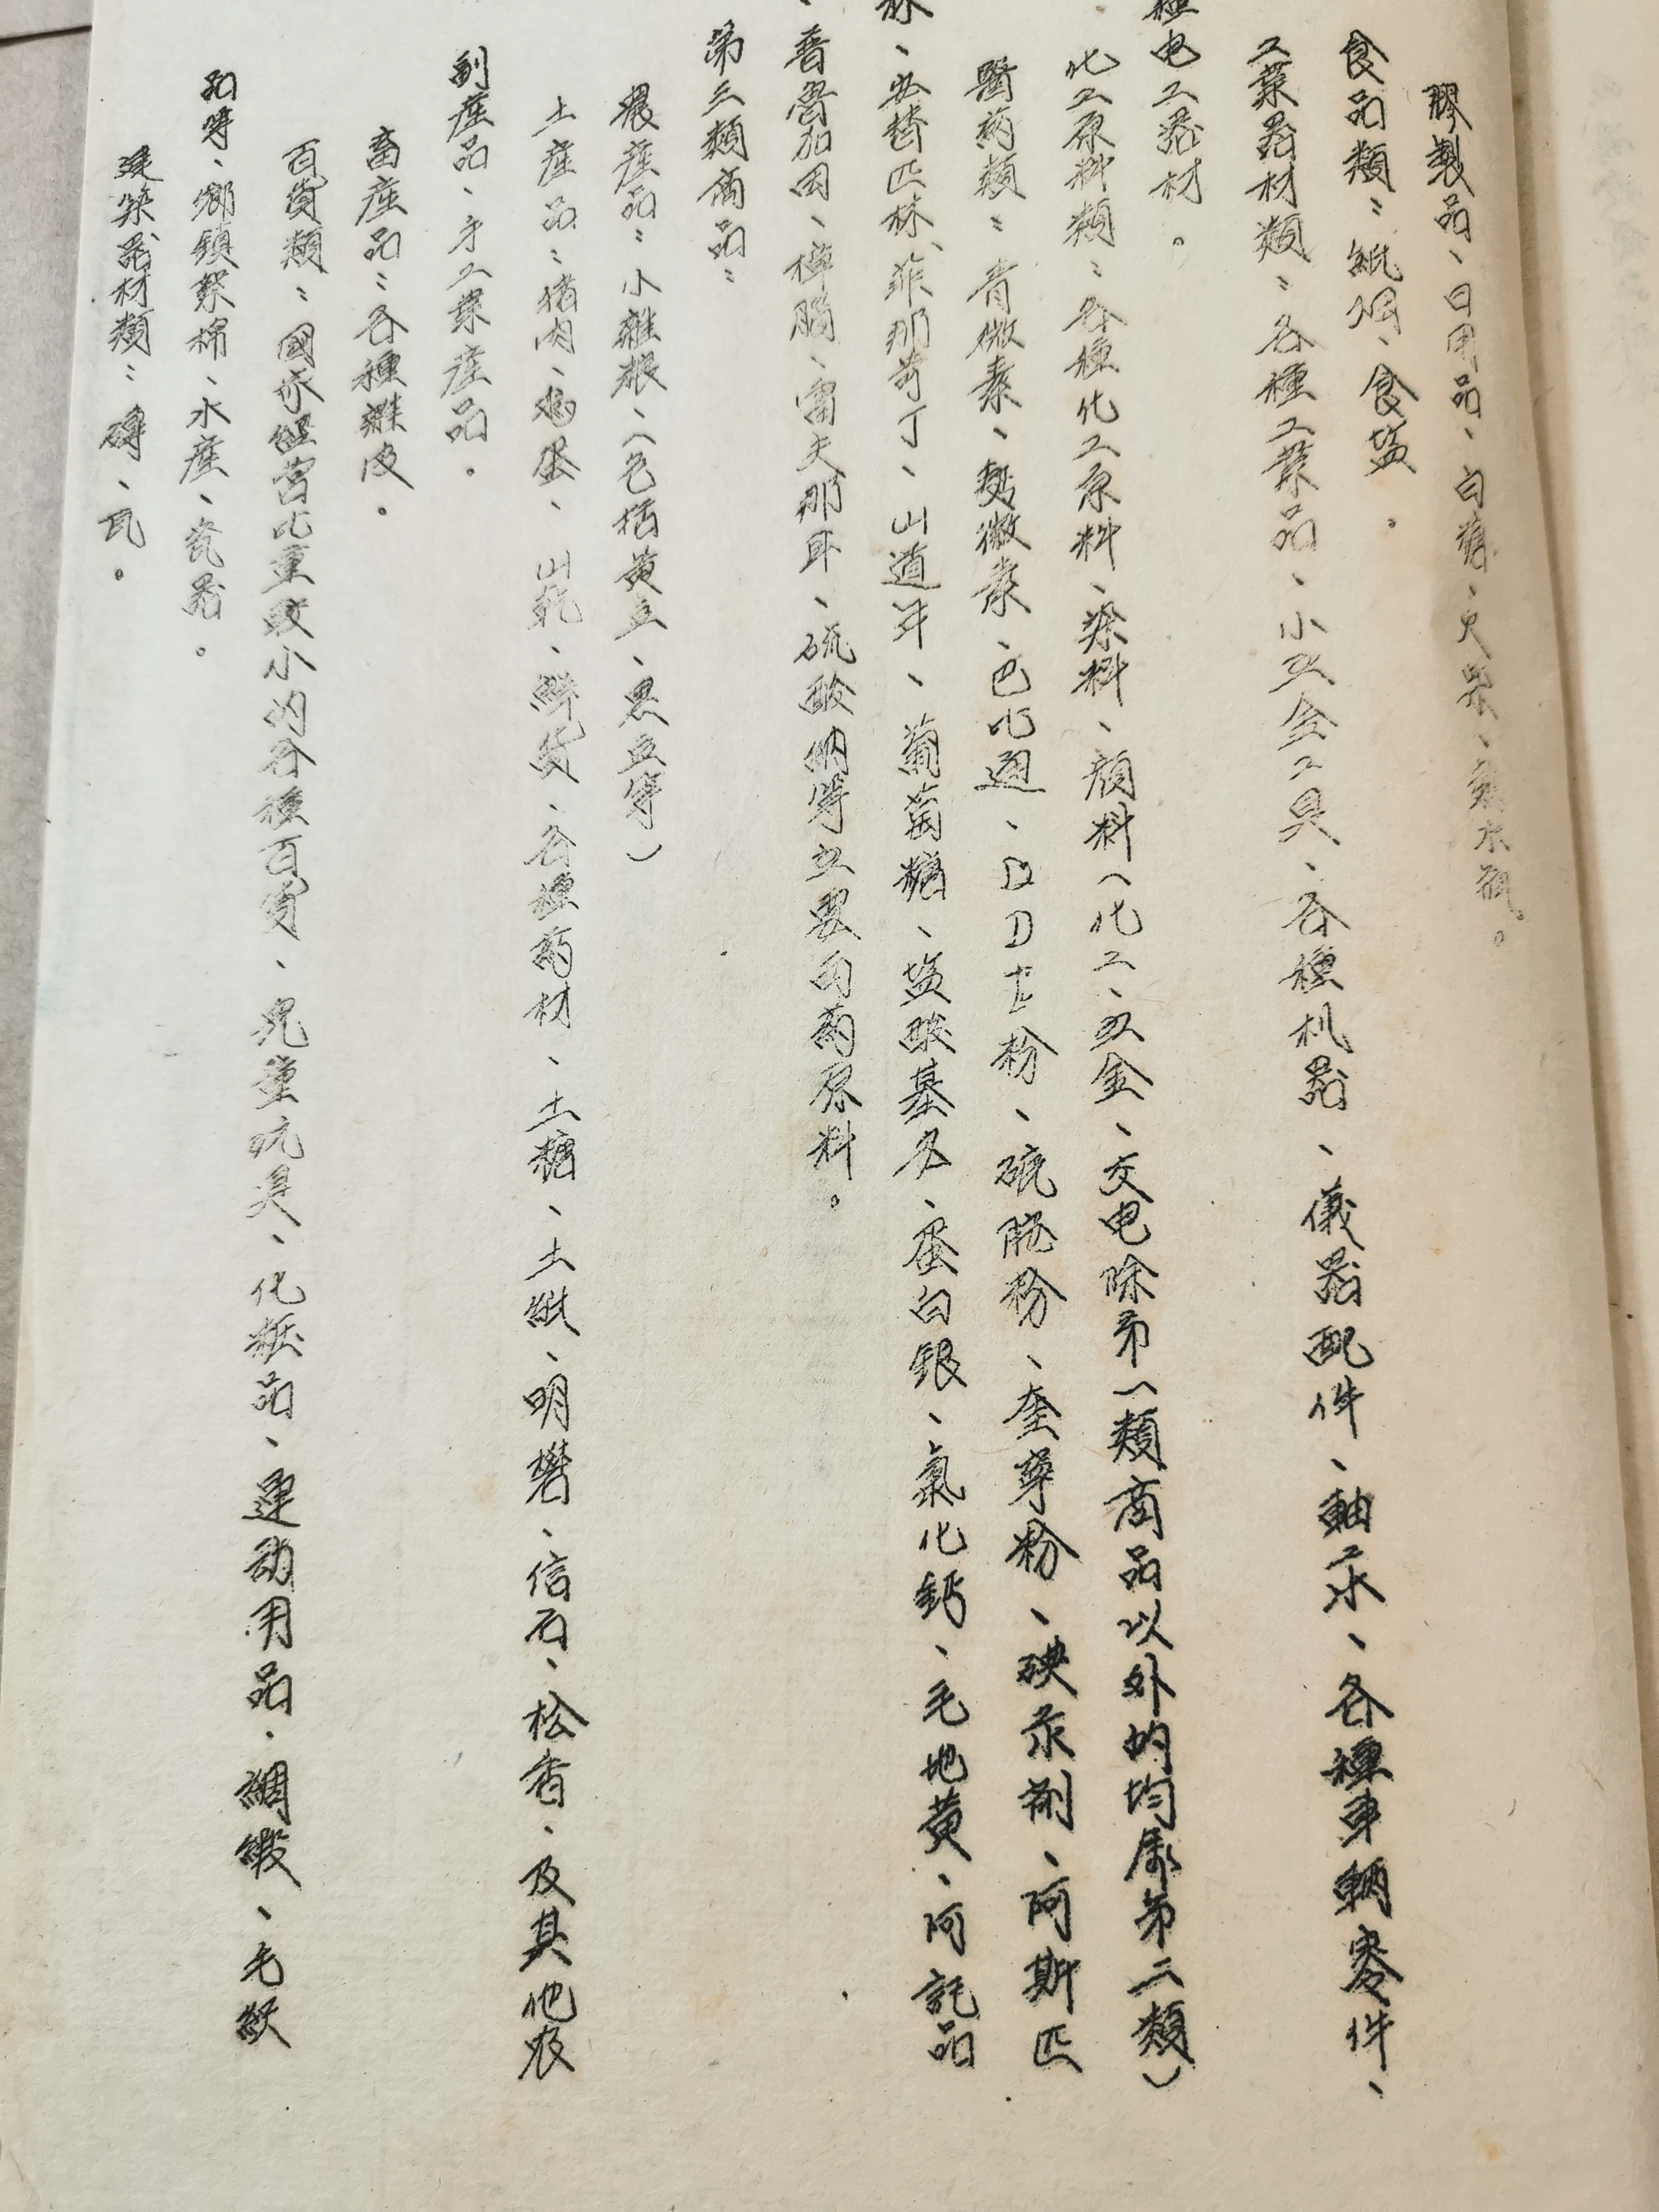 膠製品、日用品、白糖、火柴、熱水瓶。
食品類：紙烟、食塩。
工業器材類：各種工業品、小五金工具、各種机器、儀器配件、軸承、各種車輛零件、
種电工器材。
化工原料類：各種化工原料、染料、顏料（化工、五金、交电除第一類商品以外的均屬第二類）
醫药類：青微素、鏈微素、巴比通、DDT粉、硫胺粉、奎寧粉、碘汞剂、阿斯匹
林、必替匹林、非那更丁、山道年、葡萄糖、塩酸基多、蛋白银、氯化钙、毛地黄、阿託品
、普魯加因、樟腦、雷夫那耳、硫酸钠等主要西药原料。
第三類商品：
農產品：小雜粮、（包括黄豆、黑豆等）
土產品：猪肉、鸡蛋、山乾、鲜货、各種药材、土糖、土紙、明礬、信石、松香、及其他农
副產品、手工業產品。
畜產品：各種雜皮。
百貨類：國家經营比重較小的各種百貨、児童玩具、化粧品、運动用品、綢緞、毛织
品等、鄉鎮絮棉、水產、瓷器。
建築器材類：磚、瓦。